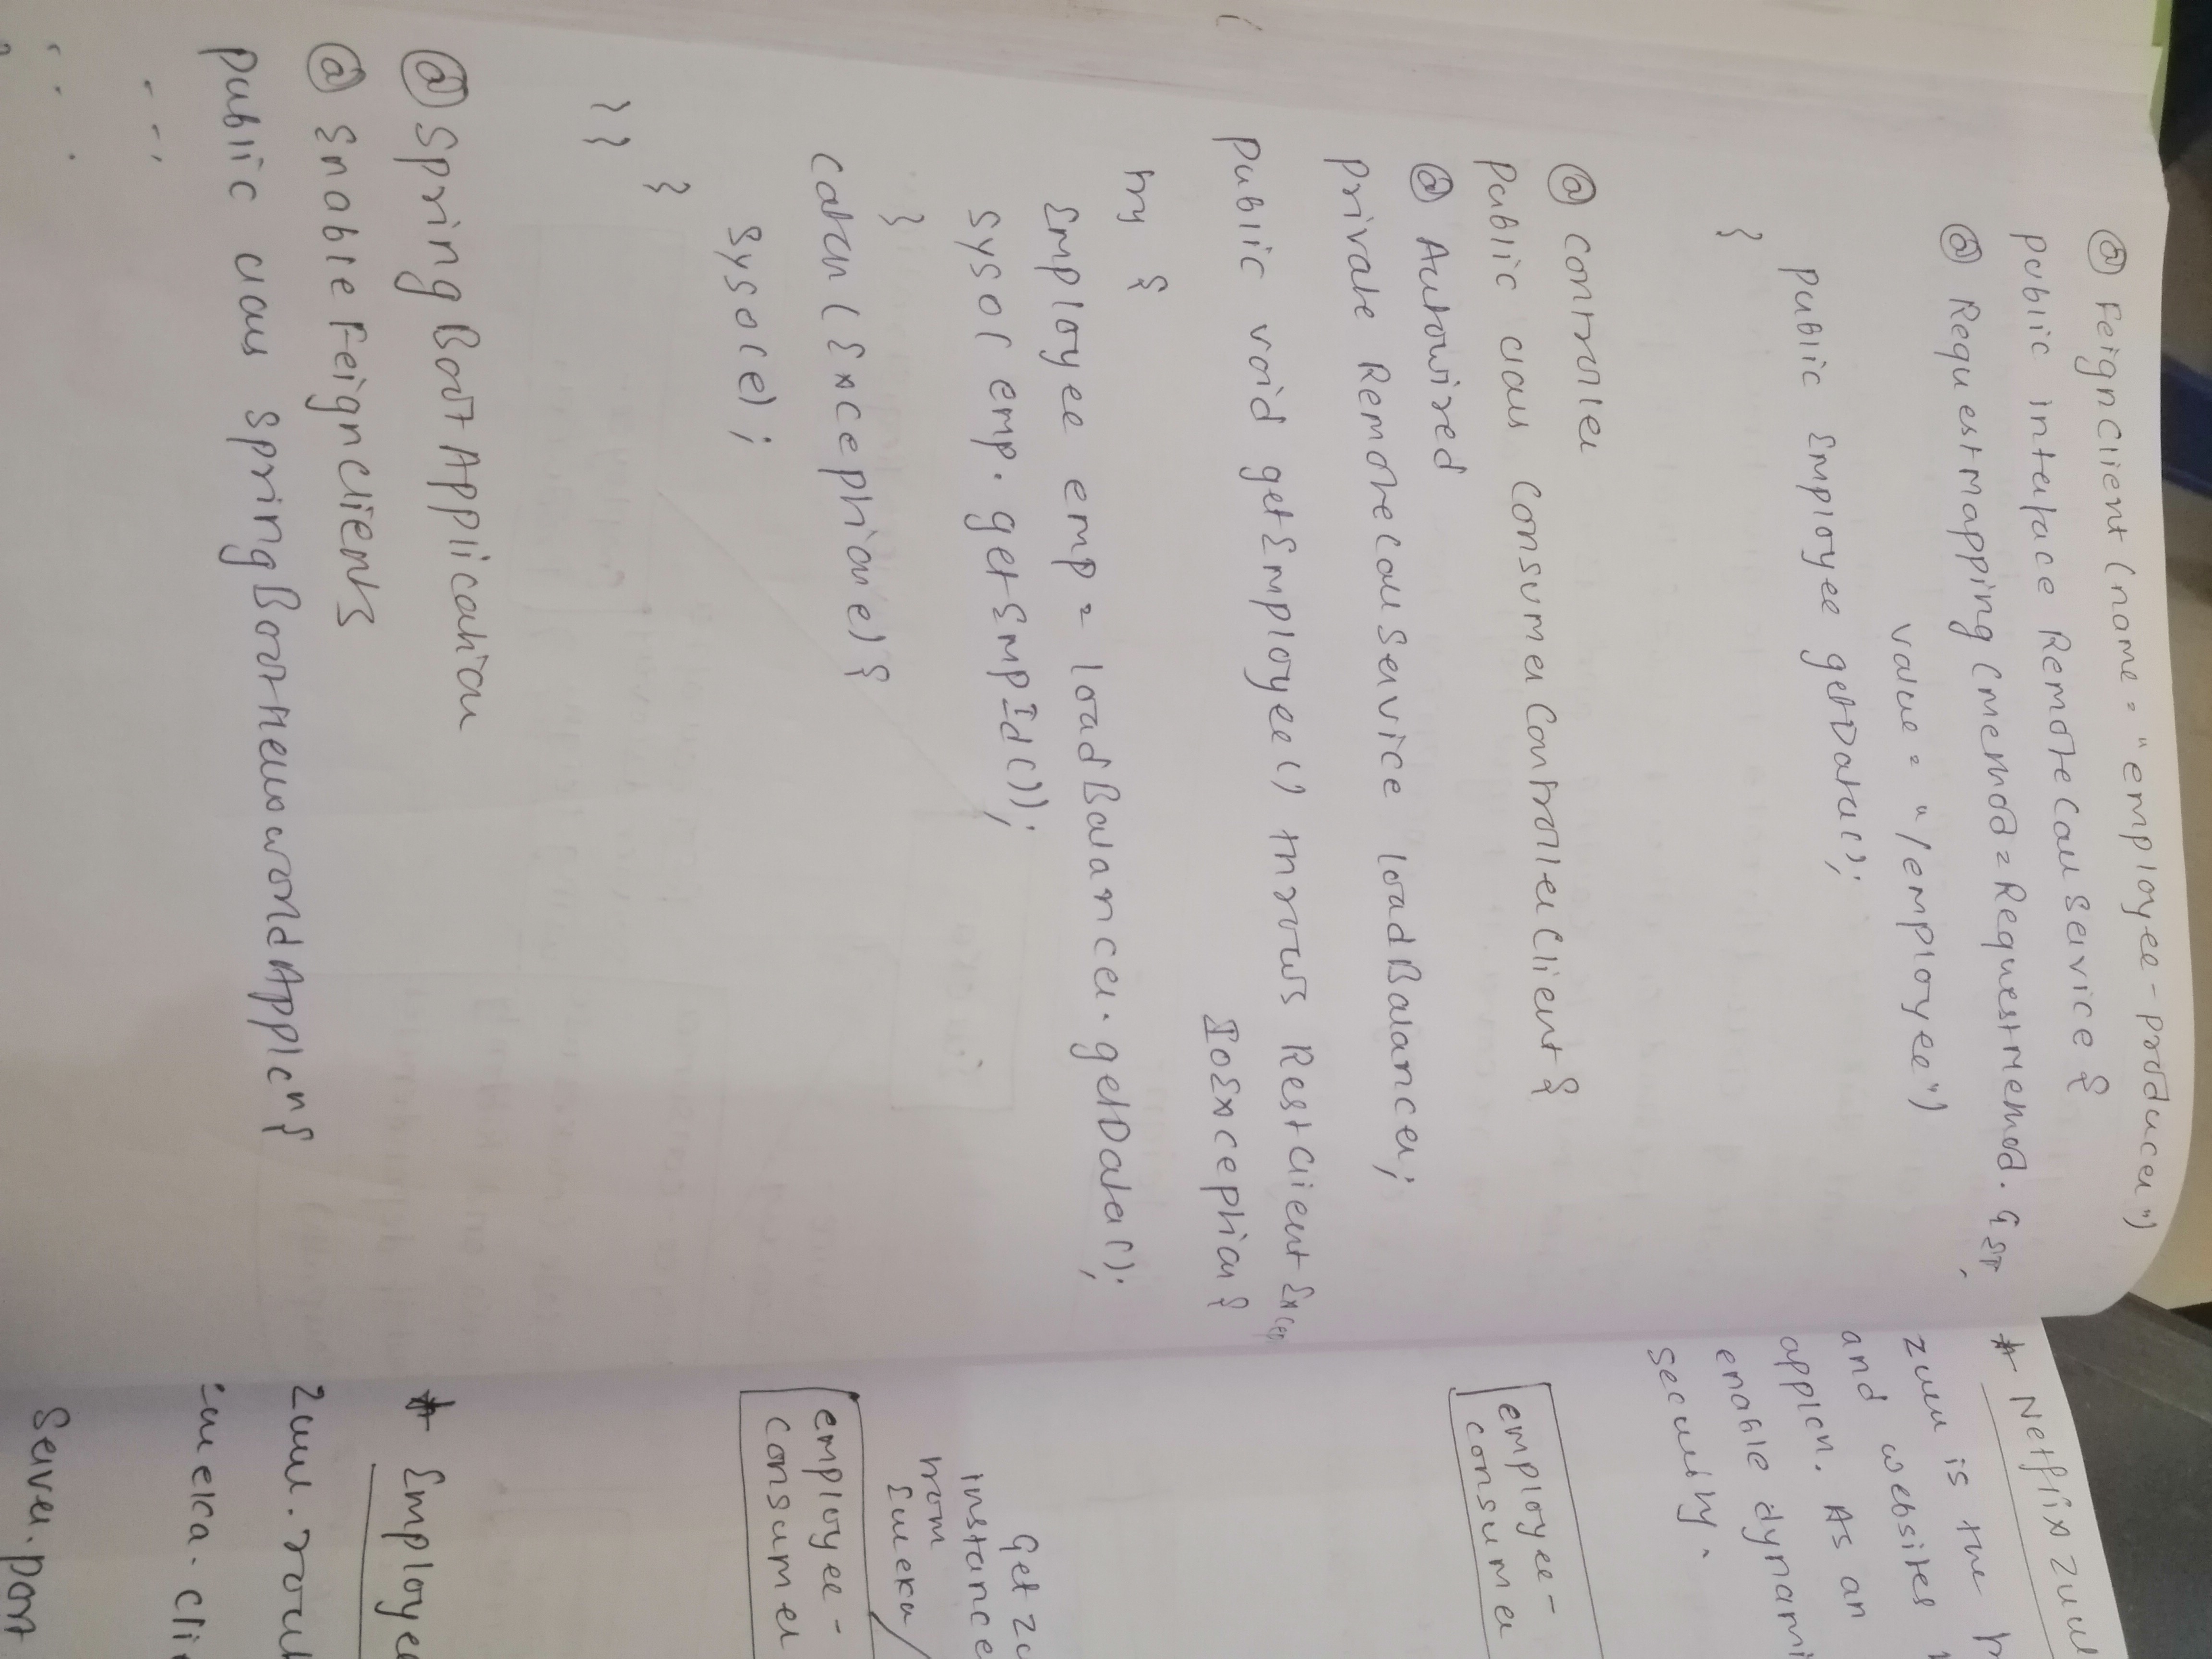 @ FeignClient (name = "employee-producer")
public interface RemoteCallService {
@ Requestmapping (method = Requestmethod. GET,
value = "/employee")
public Employee getData();
}
@ controller
public class ConsumerControllerClient {
@ Autowired
private RemoteCallService loadBalancer;
public void getEmployee() throws RestClientExcep
IoException {
try {
Employee emp = loadBalancer.getData();
syso( emp. getEmpId());
}
catch ( Exception e) {
syso(e);
}
} }
@ SpringBootApplication
@ EnableFeignClients
public class SpringBootHelloworldApplcn {
* Netflix zuul
zuul is the
and websites
applcn. As an
enable dynami
security.
employee-
consumer
Get
instance
from
Eureka/
employee-
consumer
* Employee
zuul.
eureka. cli
Server.port